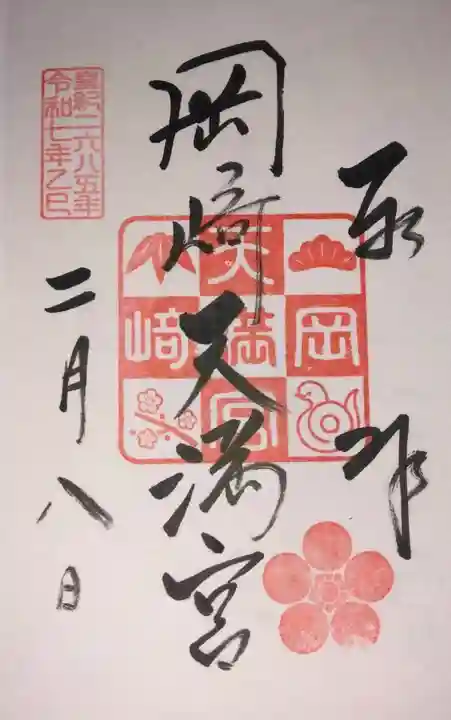 奉拝
岡崎天満宮
岡
﨑
天満宮
皇紀二六八五年
令和七年乙巳
二月八日